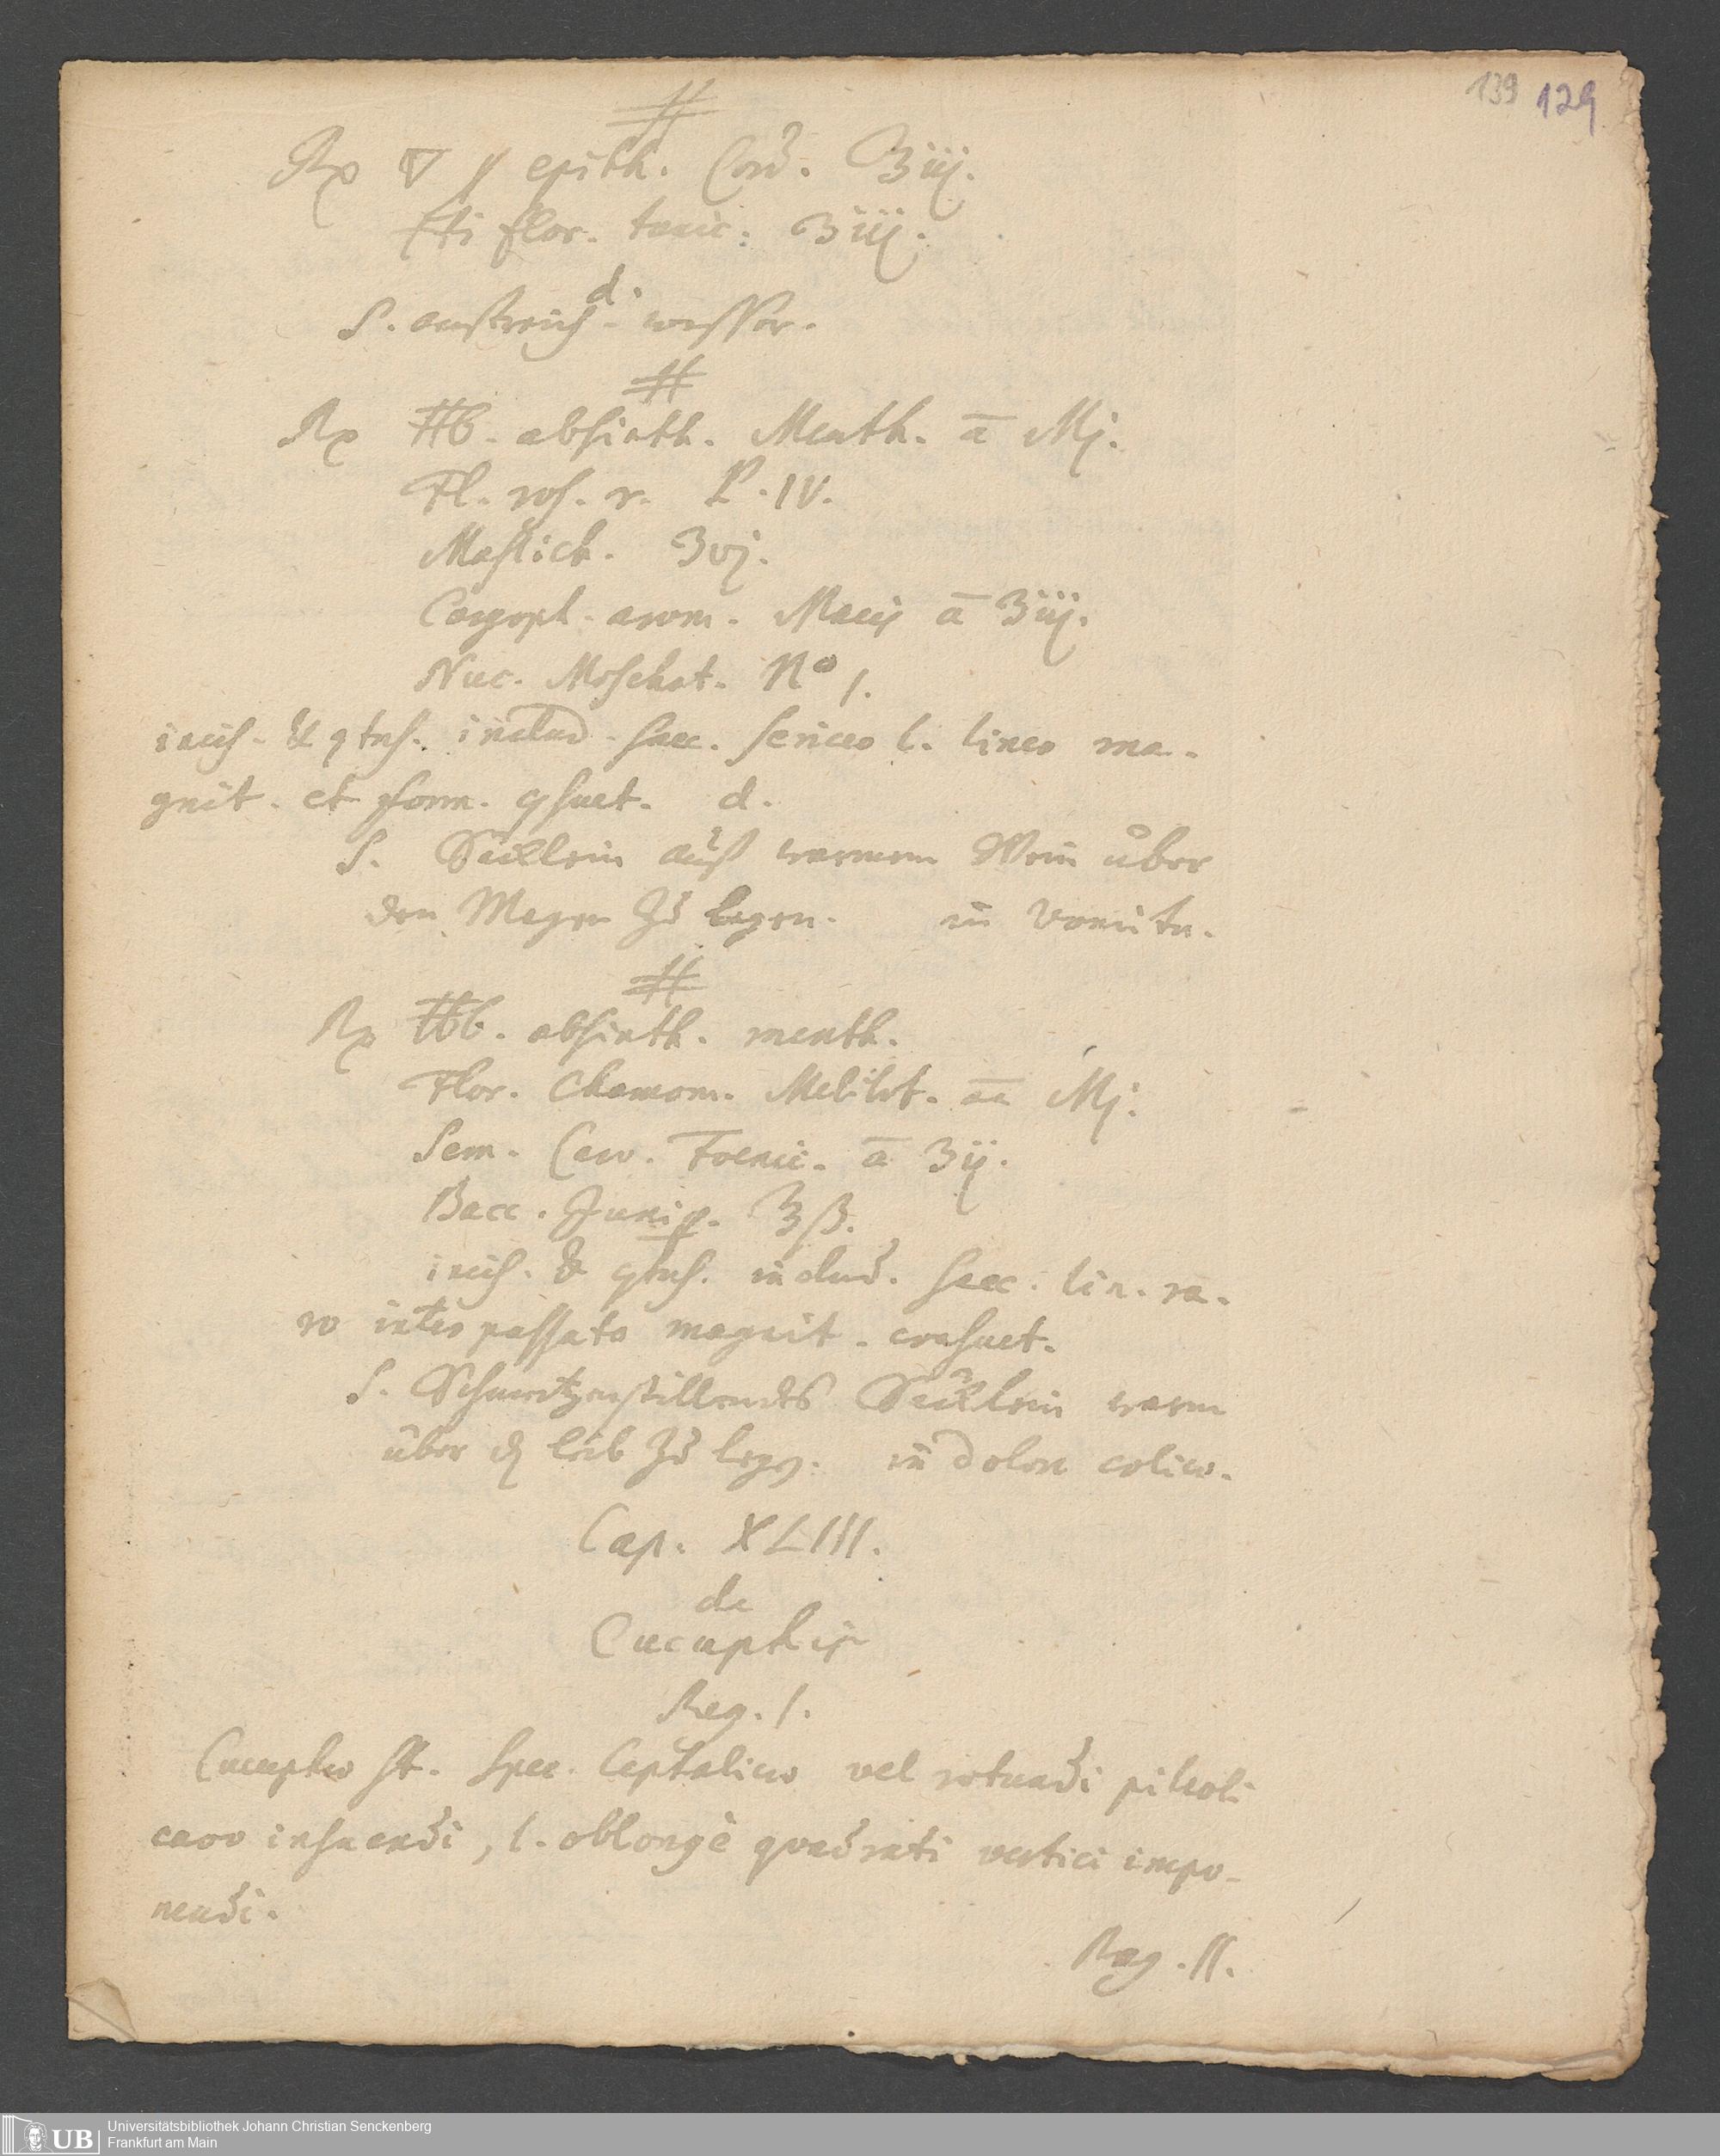 139 129
#
Rx ▽ p epith. Cord. ℥iij.
Eti flor. tunic. ʒiij.
d.
S. anstreich-wasser.
#
Rx Hb. absinth. Menth. ā Mj.
Fl. ros. r. P. IV.
Mastich. ʒvj.
Caryoph. arom. Macis ā ʒiij.
Nuc. Moschat. No 1.
incis. & qtus. includ. sacc. sericeo l. lineo ma-
gnit. et form. qsuet. d.
S. Säcklein auß warmem Wein über
den Magen zu legen. in vomitu.
#
Rx Hbb. absinth. menth.
Flor. Chamom. Melilot. aa Mj.
Sem. Carv. Foenic. ā ʒij.
Bacc. Junip. ℥ß.
incis. & qtus. includ. sacc. lin. ra-
ro inter passato magnit. consuet.
S. Schmertzenstillendes Säcklein warm
über den leib zu legen. in dolore colico.
Cap. XLIII.
de
Cucuphis
Reg. 1.
Cucupha st. spec. Cephalicus vel rotundi pileoli
cavo insuendi, l. oblongè quadrati vertici impo-
nendi.
Reg. II.
UB Universitätsbibliothek Johann Christian Senckenberg
Frankfurt am Main